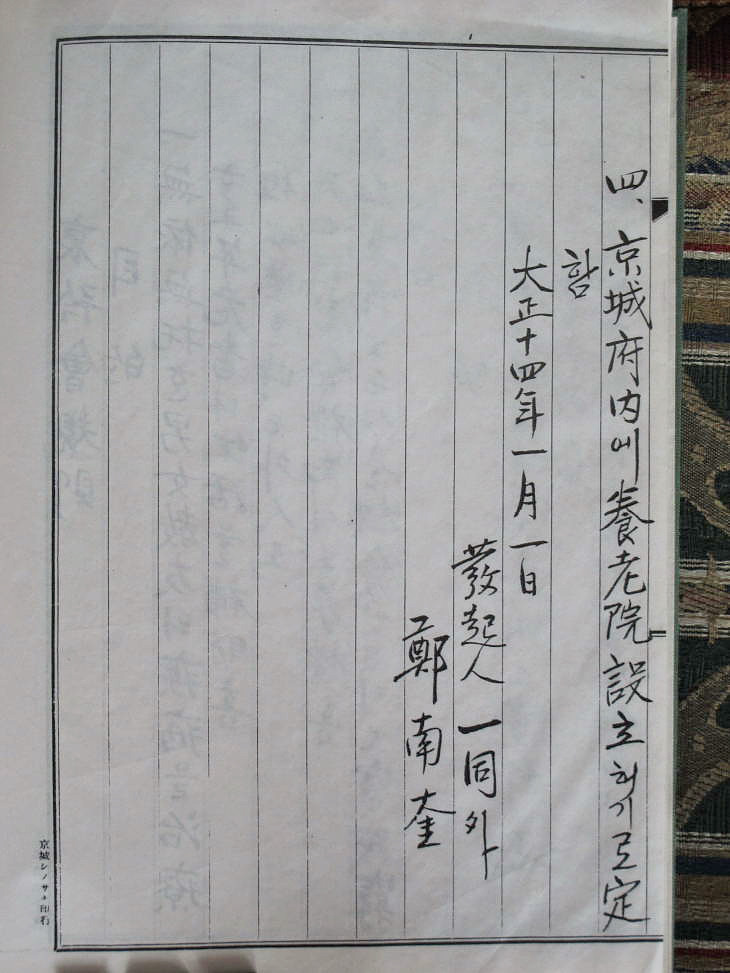 四、京城府内에養老院設立하기로定
함
大正十四年一月一日
發起人一同外
鄭南奎
京城シノサキ印行